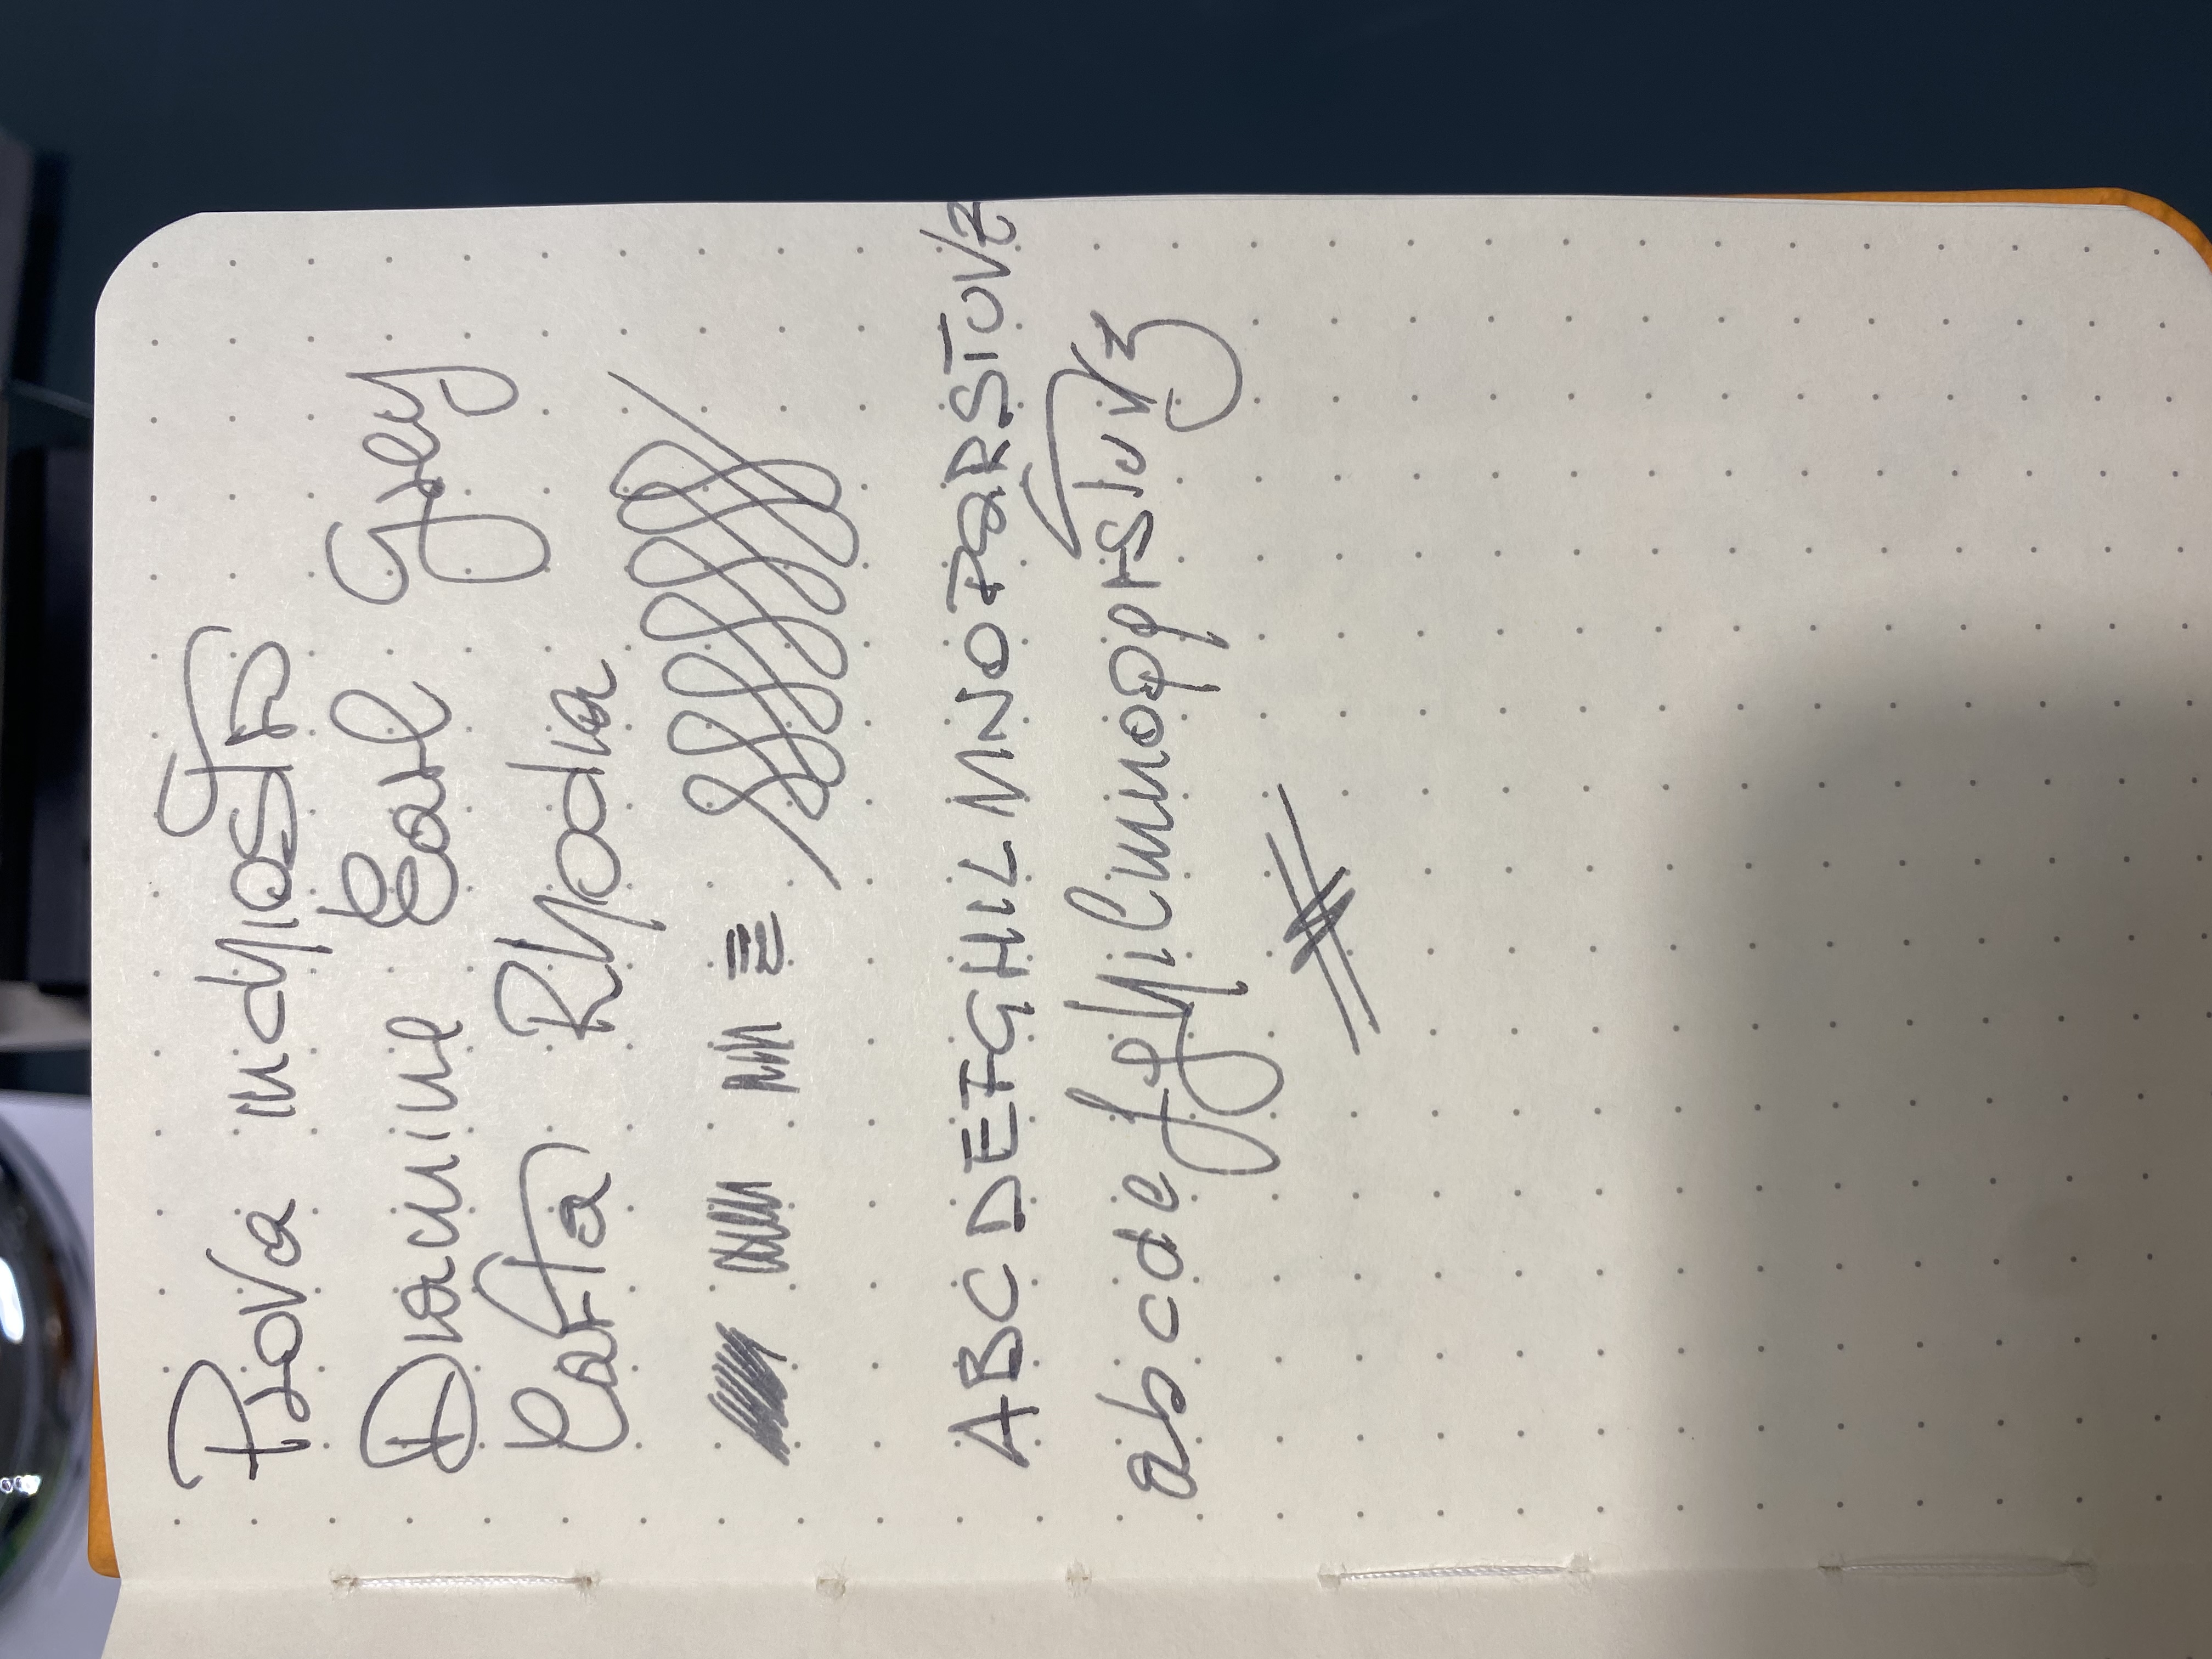 Prova inchiostro
Diamine Earl Grey
Carta Rhodia
ABCDEFGHILMNOPQRSTUVZ
abcdefghilmnopqrstuvz